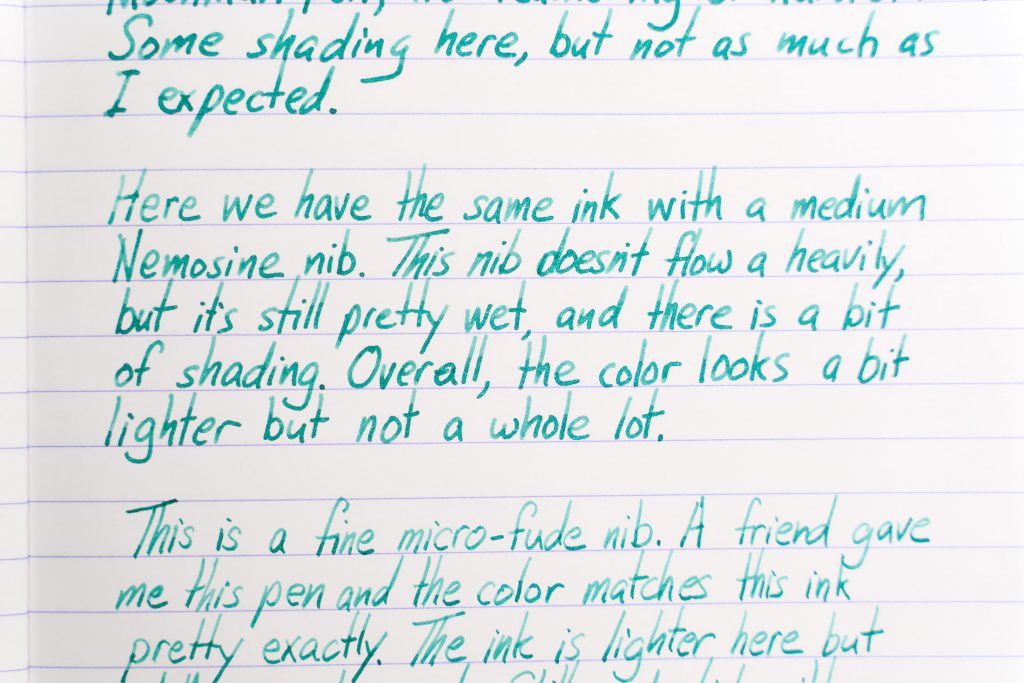 Some shading here, but not as much as
I expected.
Here we have the same ink with a medium
Nemosine nib. This nib doesn't flow a heavily,
but it's still pretty wet, and there is a bit
of shading. Overall, the color looks a bit
lighter but not a whole lot.
This is a fine micro-fude nib. A friend gave
me this pen and the color matches this ink
pretty exactly. The ink is lighter here but